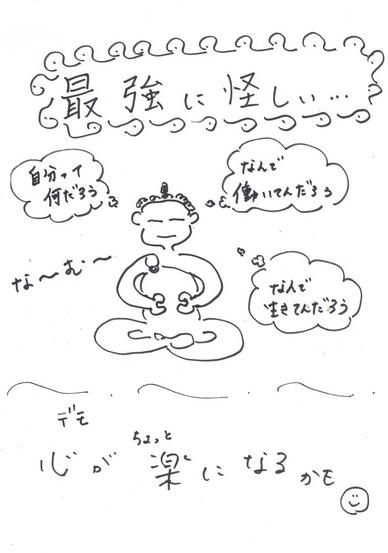 最強に怪しい…
自分って
何だろう
なんで
働いてんだろう
な〜む〜
なんで
生きてんだろう
デモ
ちょっと
心が楽になるかも